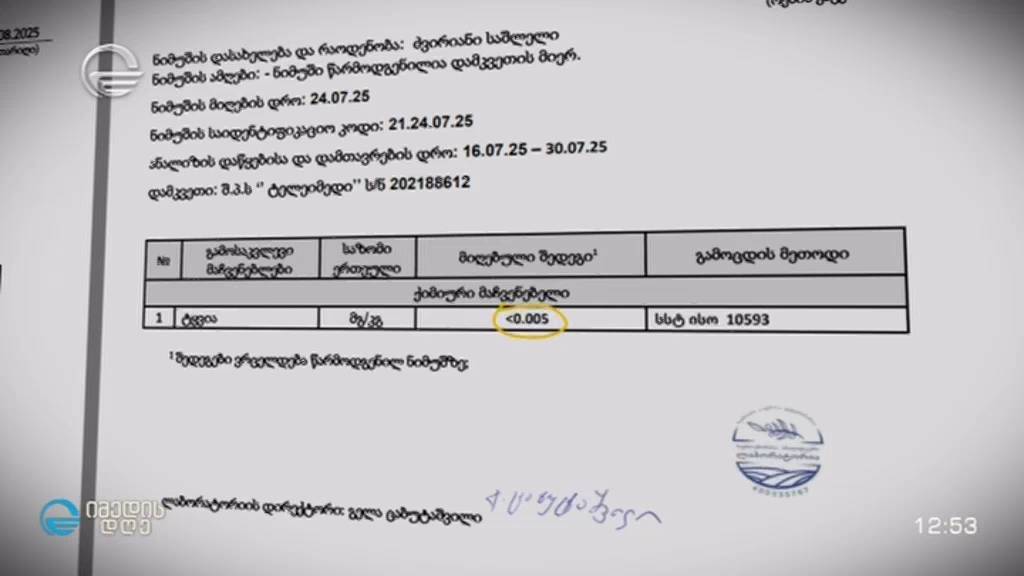 .08.2025
ნიმუშის დასახელება და რაოდენობა: ძვირიანი საშლელი
ნიმუშის აღება: - ნიმუში წარმოდგენილია დამკვეთის მიერ.
ნიმუშის მიღების დრო: 24.07.25
ნიმუშის საიდენტიფიკაციო კოდი: 21.24.07.25
ანალიზის დაწყებისა და დამთავრების დრო: 16.07.25 – 30.07.25
დამკვეთი: შ.პ.ს ‘’ ტელეიმედი’’ ს/ნ 202188612
№ გამოსაკვლევი მაჩვენებლები საზომი ერთეული მიღებული შედეგი¹ გამოცდის მეთოდი
ქიმიური მაჩვენებელი
1 ტყვია მგ/კგ <0.005 სსტ ისო 10593
¹ შედეგები ვრცელდება წარმოდგენილ ნიმუშზე;
ლაბორატორია
ლაბორატორიის დირექტორი: გელა ცაბუტაშვილი
იმედის
დღე
12:53